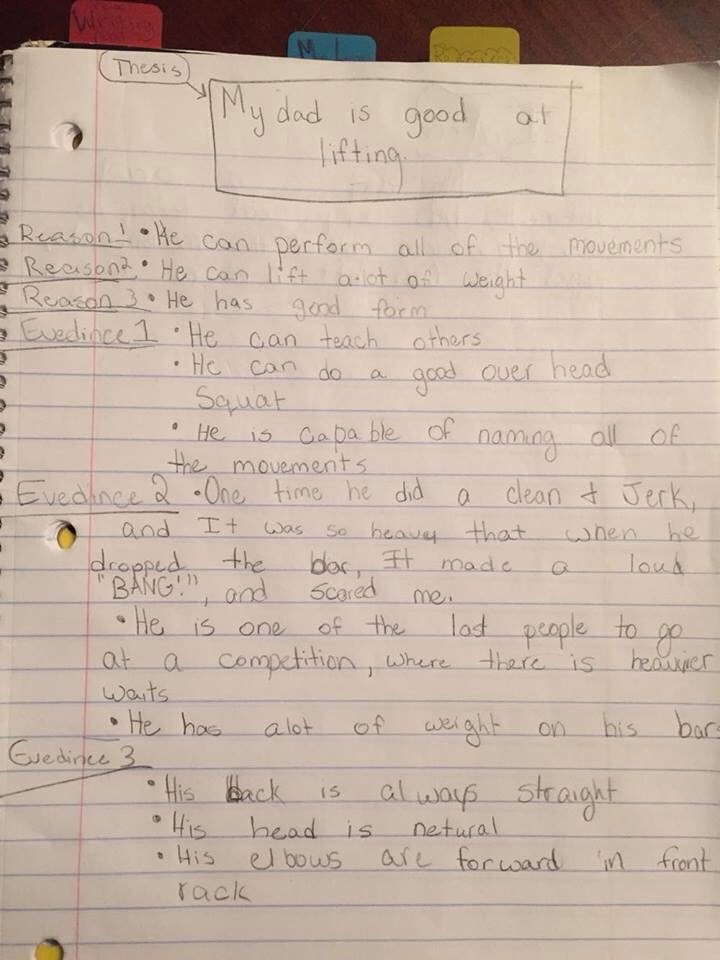 Writing
Thesis
My dad is good at
lifting.
Reason 1 • He can perform all of the movements
Reason 2 • He can lift a-lot of weight
Reason 3 • He has good form
Evedince 1 • He can teach others
• He can do a good over head
Squat
• He is capable of naming all of
the movements
Evedince 2 • One time he did a clean + Jerk,
and It was so heavy that when he
dropped the bar, It made a loud
"BANG!", and scared me.
• He is one of the last people to go
at a competition, where there is heavier
waits
• He has alot of weight on his bar
Evedince 3
• His back is always straight
• His head is netural
• His elbows are forward in front
rack